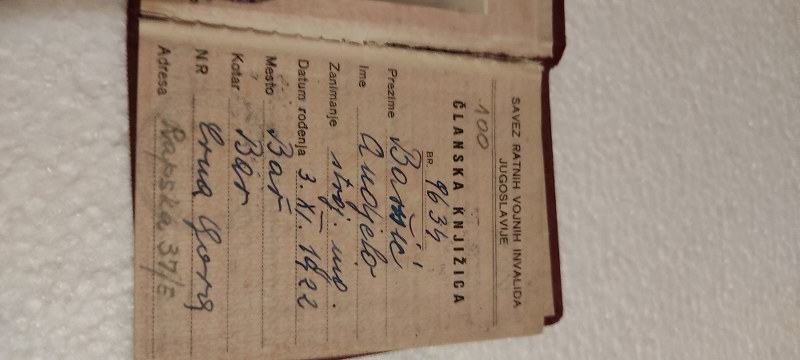 SAVEZ RATNIH VOJNIH INVALIDA
JUGOSLAVIJE
100
ČLANSKA KNJIŽICA
BR. 9634
Prezime
Ime Anđelo
Zanimanje stroj. ing.
Datum rođenja 3. XI. 1922
Mesto Bar
Kotar Bar
N.R. Crna Gora
Adresa Rapska 37/I